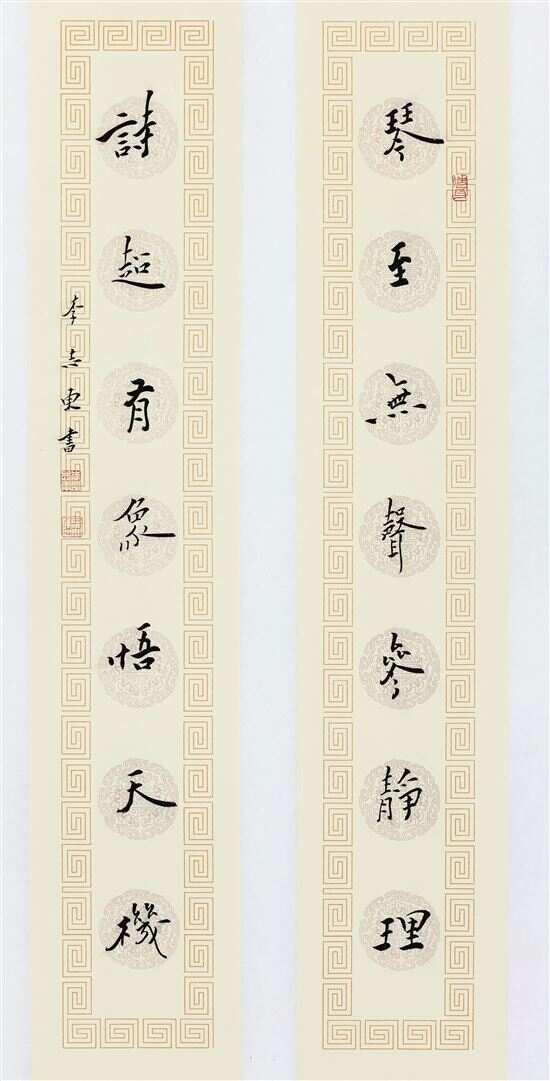 琴至無聲參靜理
詩超有象悟天機
李志更書